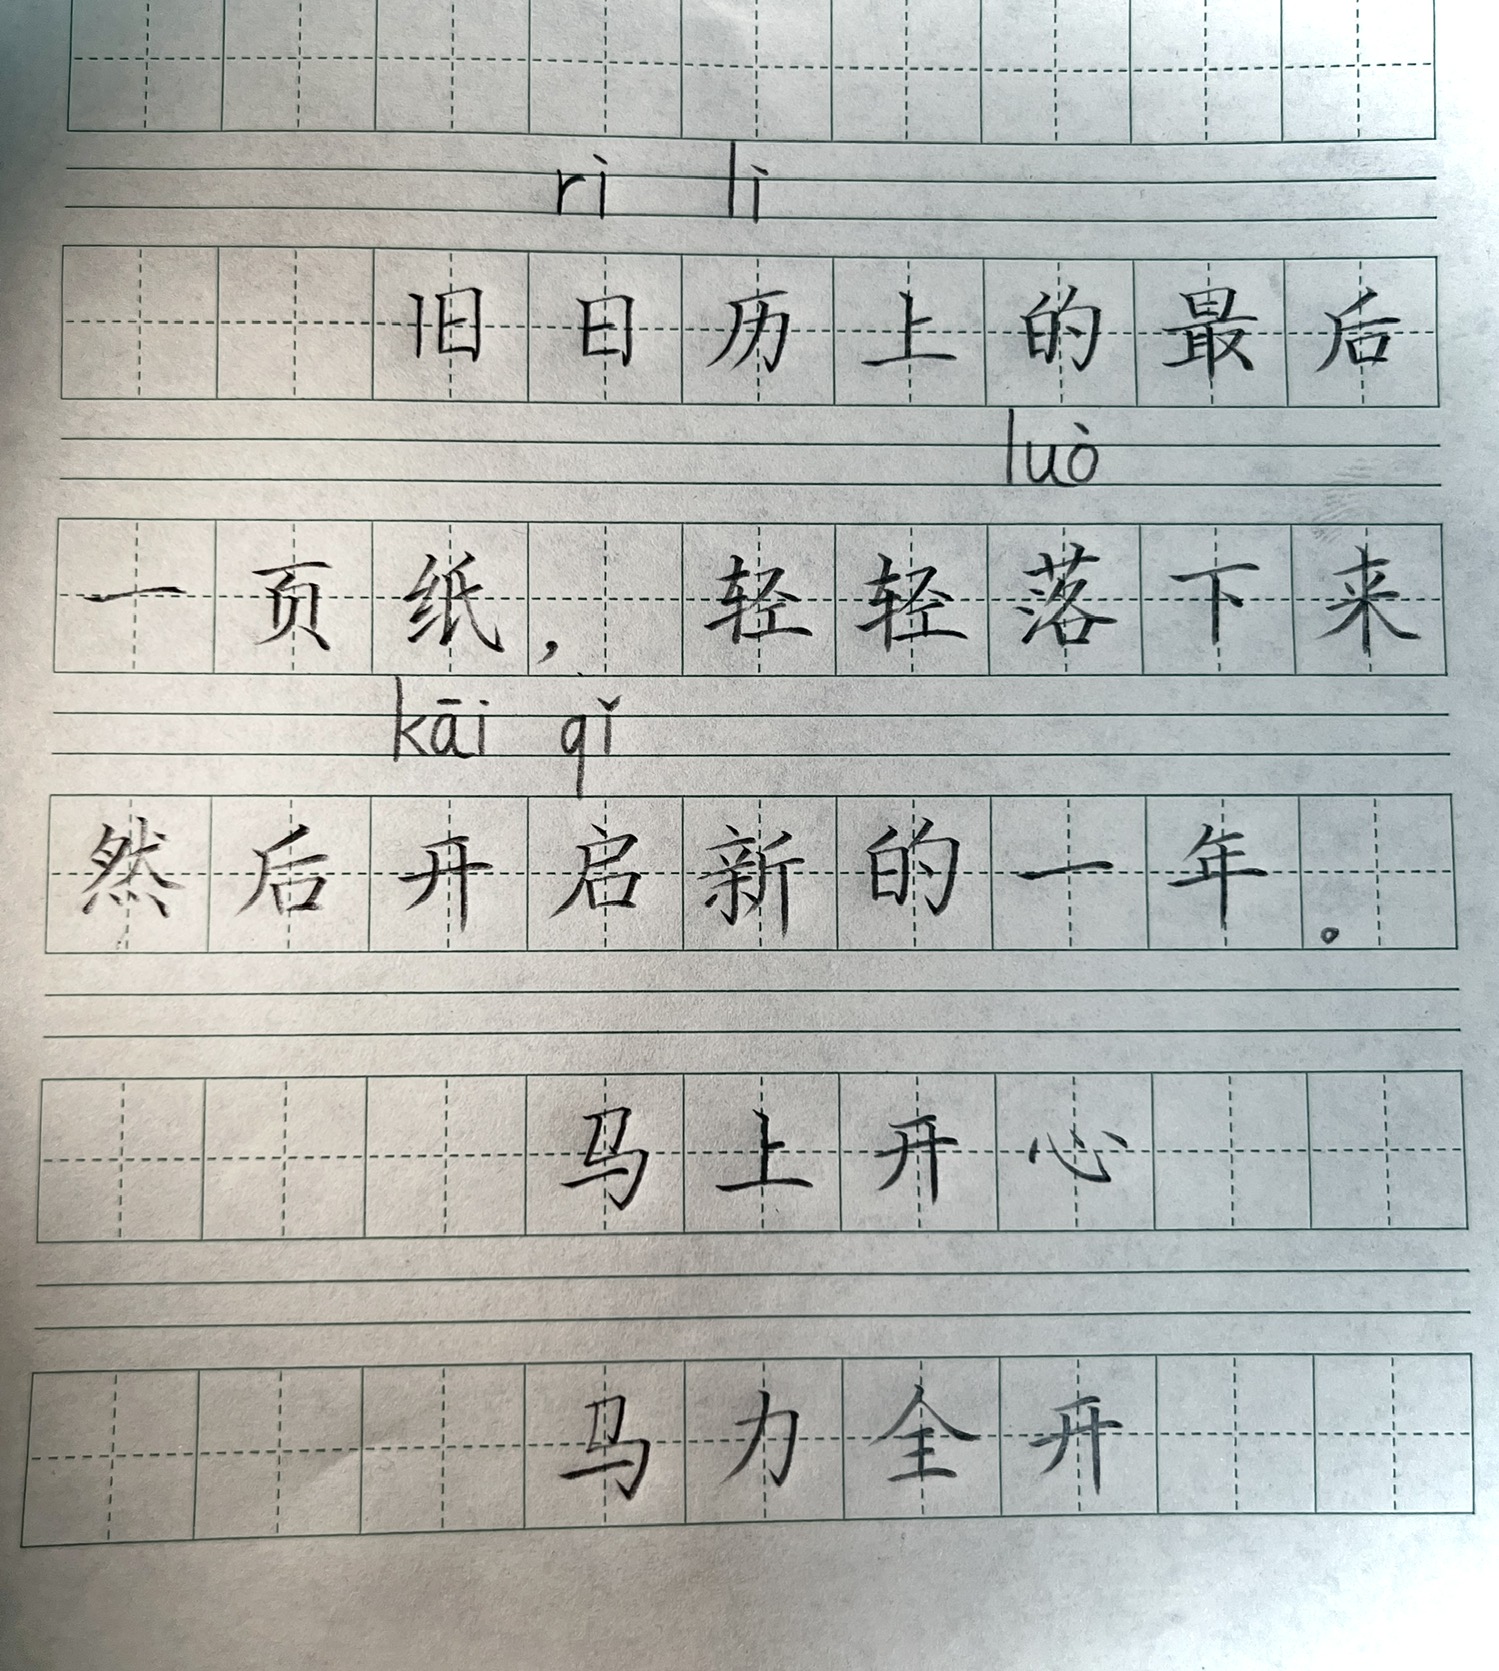 rì lì
旧日历上的最后
luò
一页纸，轻轻落下来
kāi qǐ
然后开启新的一年。
马上开心
马力全开